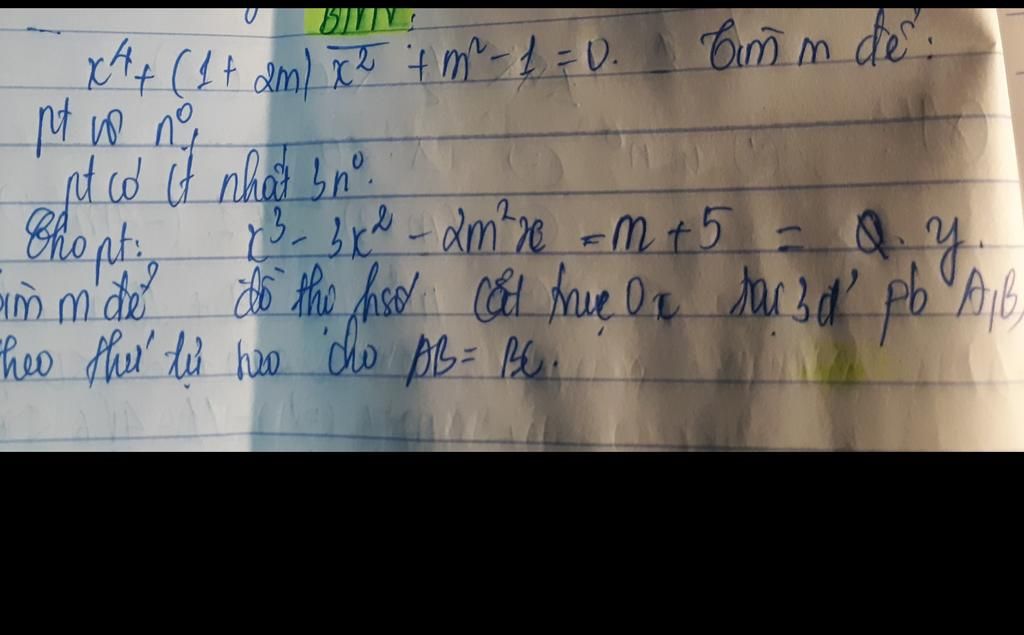 BTVN:
x⁴ + (1 + 2m) x² + m² - 1 = 0. Tìm m để:
pt vô n⁰,
pt có ít nhất 3n⁰.
Cho pt: x³ - 3x² - 2m²x = m + 5 = y.
ìm m để đồ thị hsố cắt trục Ox tại 3đ' pb A, B,
heo thứ tự sao cho AB = BC.